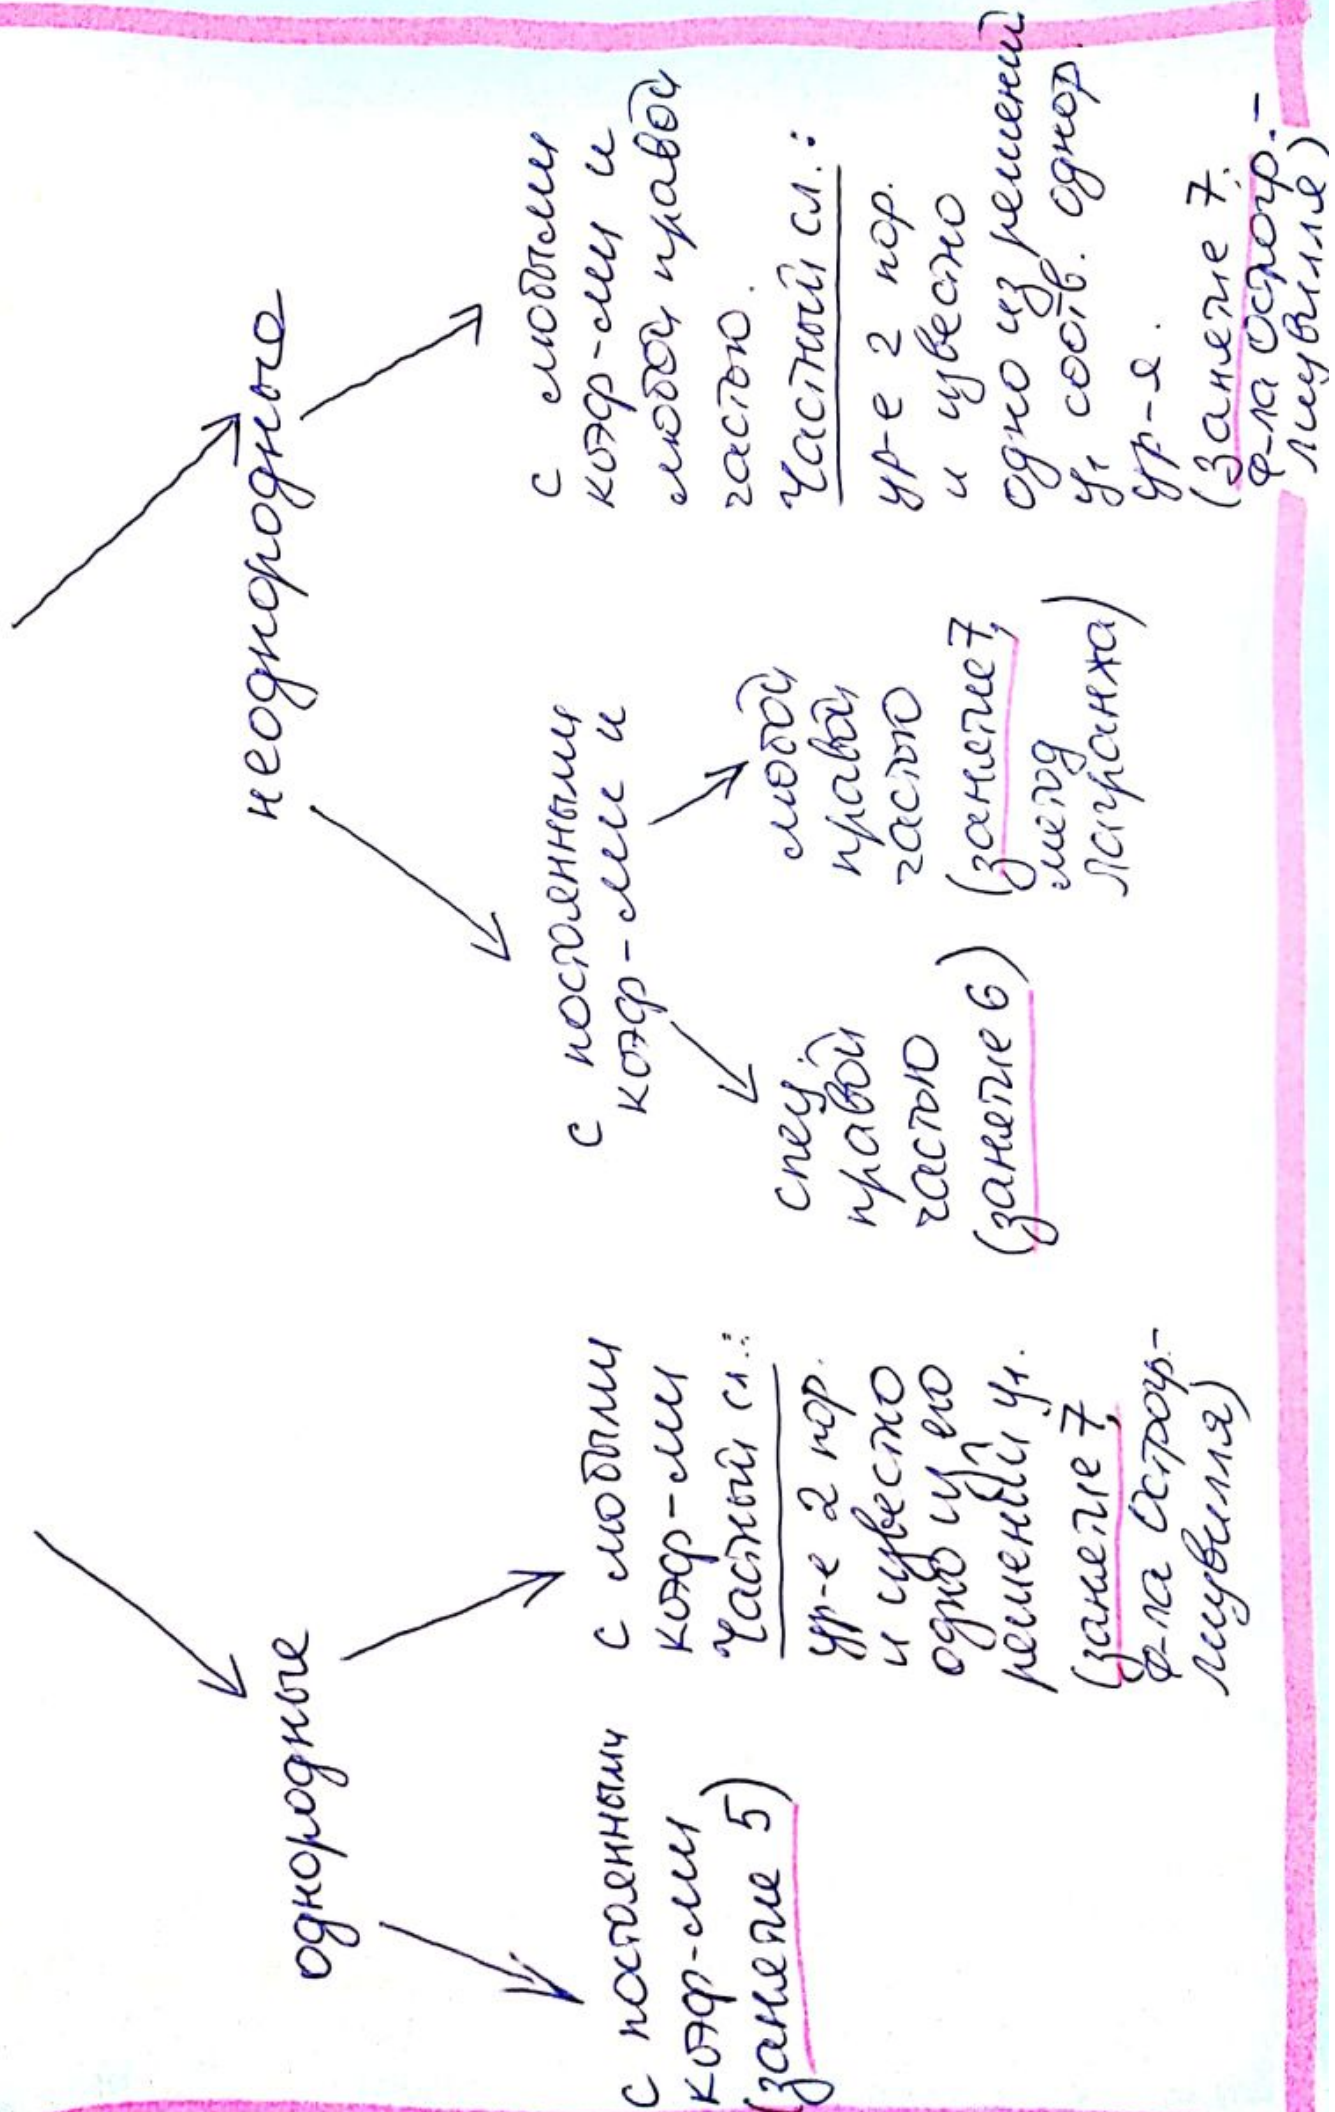 однородные
неоднородные
с постоянными
коэф-ми
(занятие 5)
с любыми
коэф-ми
Частный сл.:
ур-е 2 пор.
и известно
одно из его
решений y₁.
(занятие 7,
ф-ла Остогр.-
лиувилля)
с постоянными
коэф-ми и
спец.
правой
частью
(занятие 6)
любой
правой
частью
(занятие 7,
метод
лагранжа)
с любыми
коэф-ми и
любой правой
частью.
Частный сл.:
ур-е 2 пор.
и известно
одно из решений
y₁ соотв. однор.
ур-я.
(Занятие 7.
ф-ла остогр.-
лиувилля)